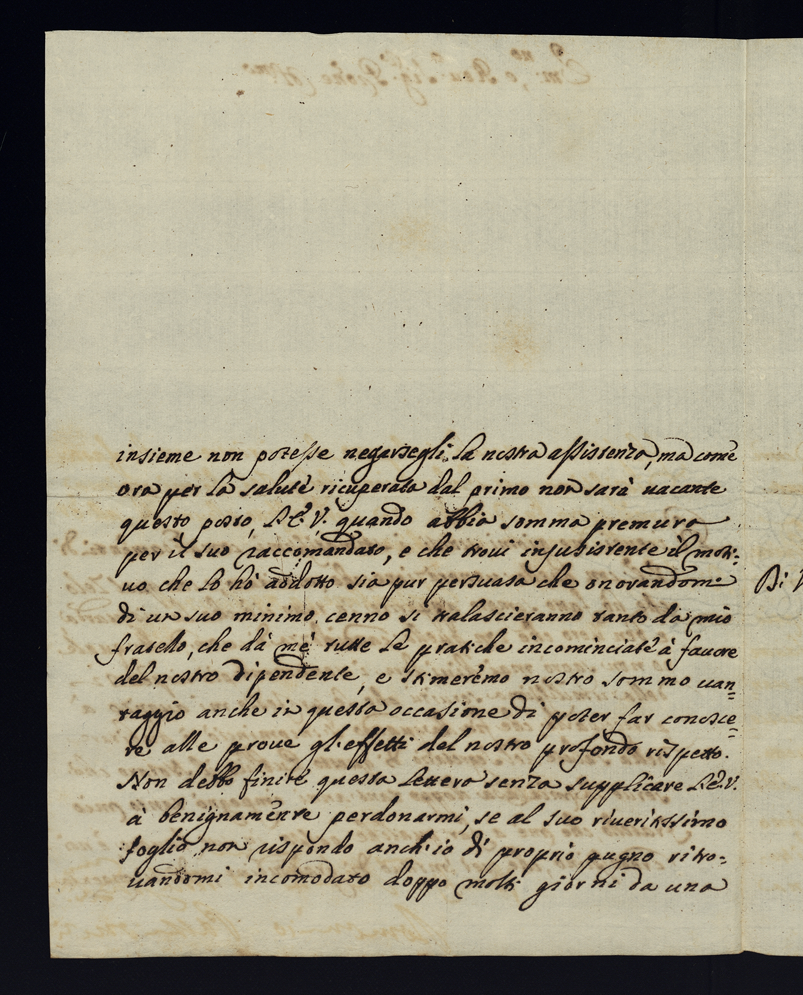 insieme non potesse negarsegli la nostra assistenza, mà come
ora per la salute ricuperata dal primo non sarà vacante
questo posto, L'E.V. quando abbia somma premura
per il suo raccomandato, e che trovi insussistente il moti=
uo che Le hò addotto sia pur persuasa che onorandomi
di un suo minimo cenno si tralascieranno tanto da mio
fratello, che dà mè tutte le pratiche incominciate à fauore
del nostro dipendente, e stimerèmo nostro sommo uan=
taggio anche in questa occasione di poter far conosce=
re alle proue gl'effetti del nostro profondo rispetto.
Non debbo finire questa lettera senza supplicare L'E.V.
à benignamente perdonarmi, se al suo riueritissimo
foglio non rispondo anch'io di proprio pugno ritro=
uandomi incomodato doppo molti giorni da una
Di V